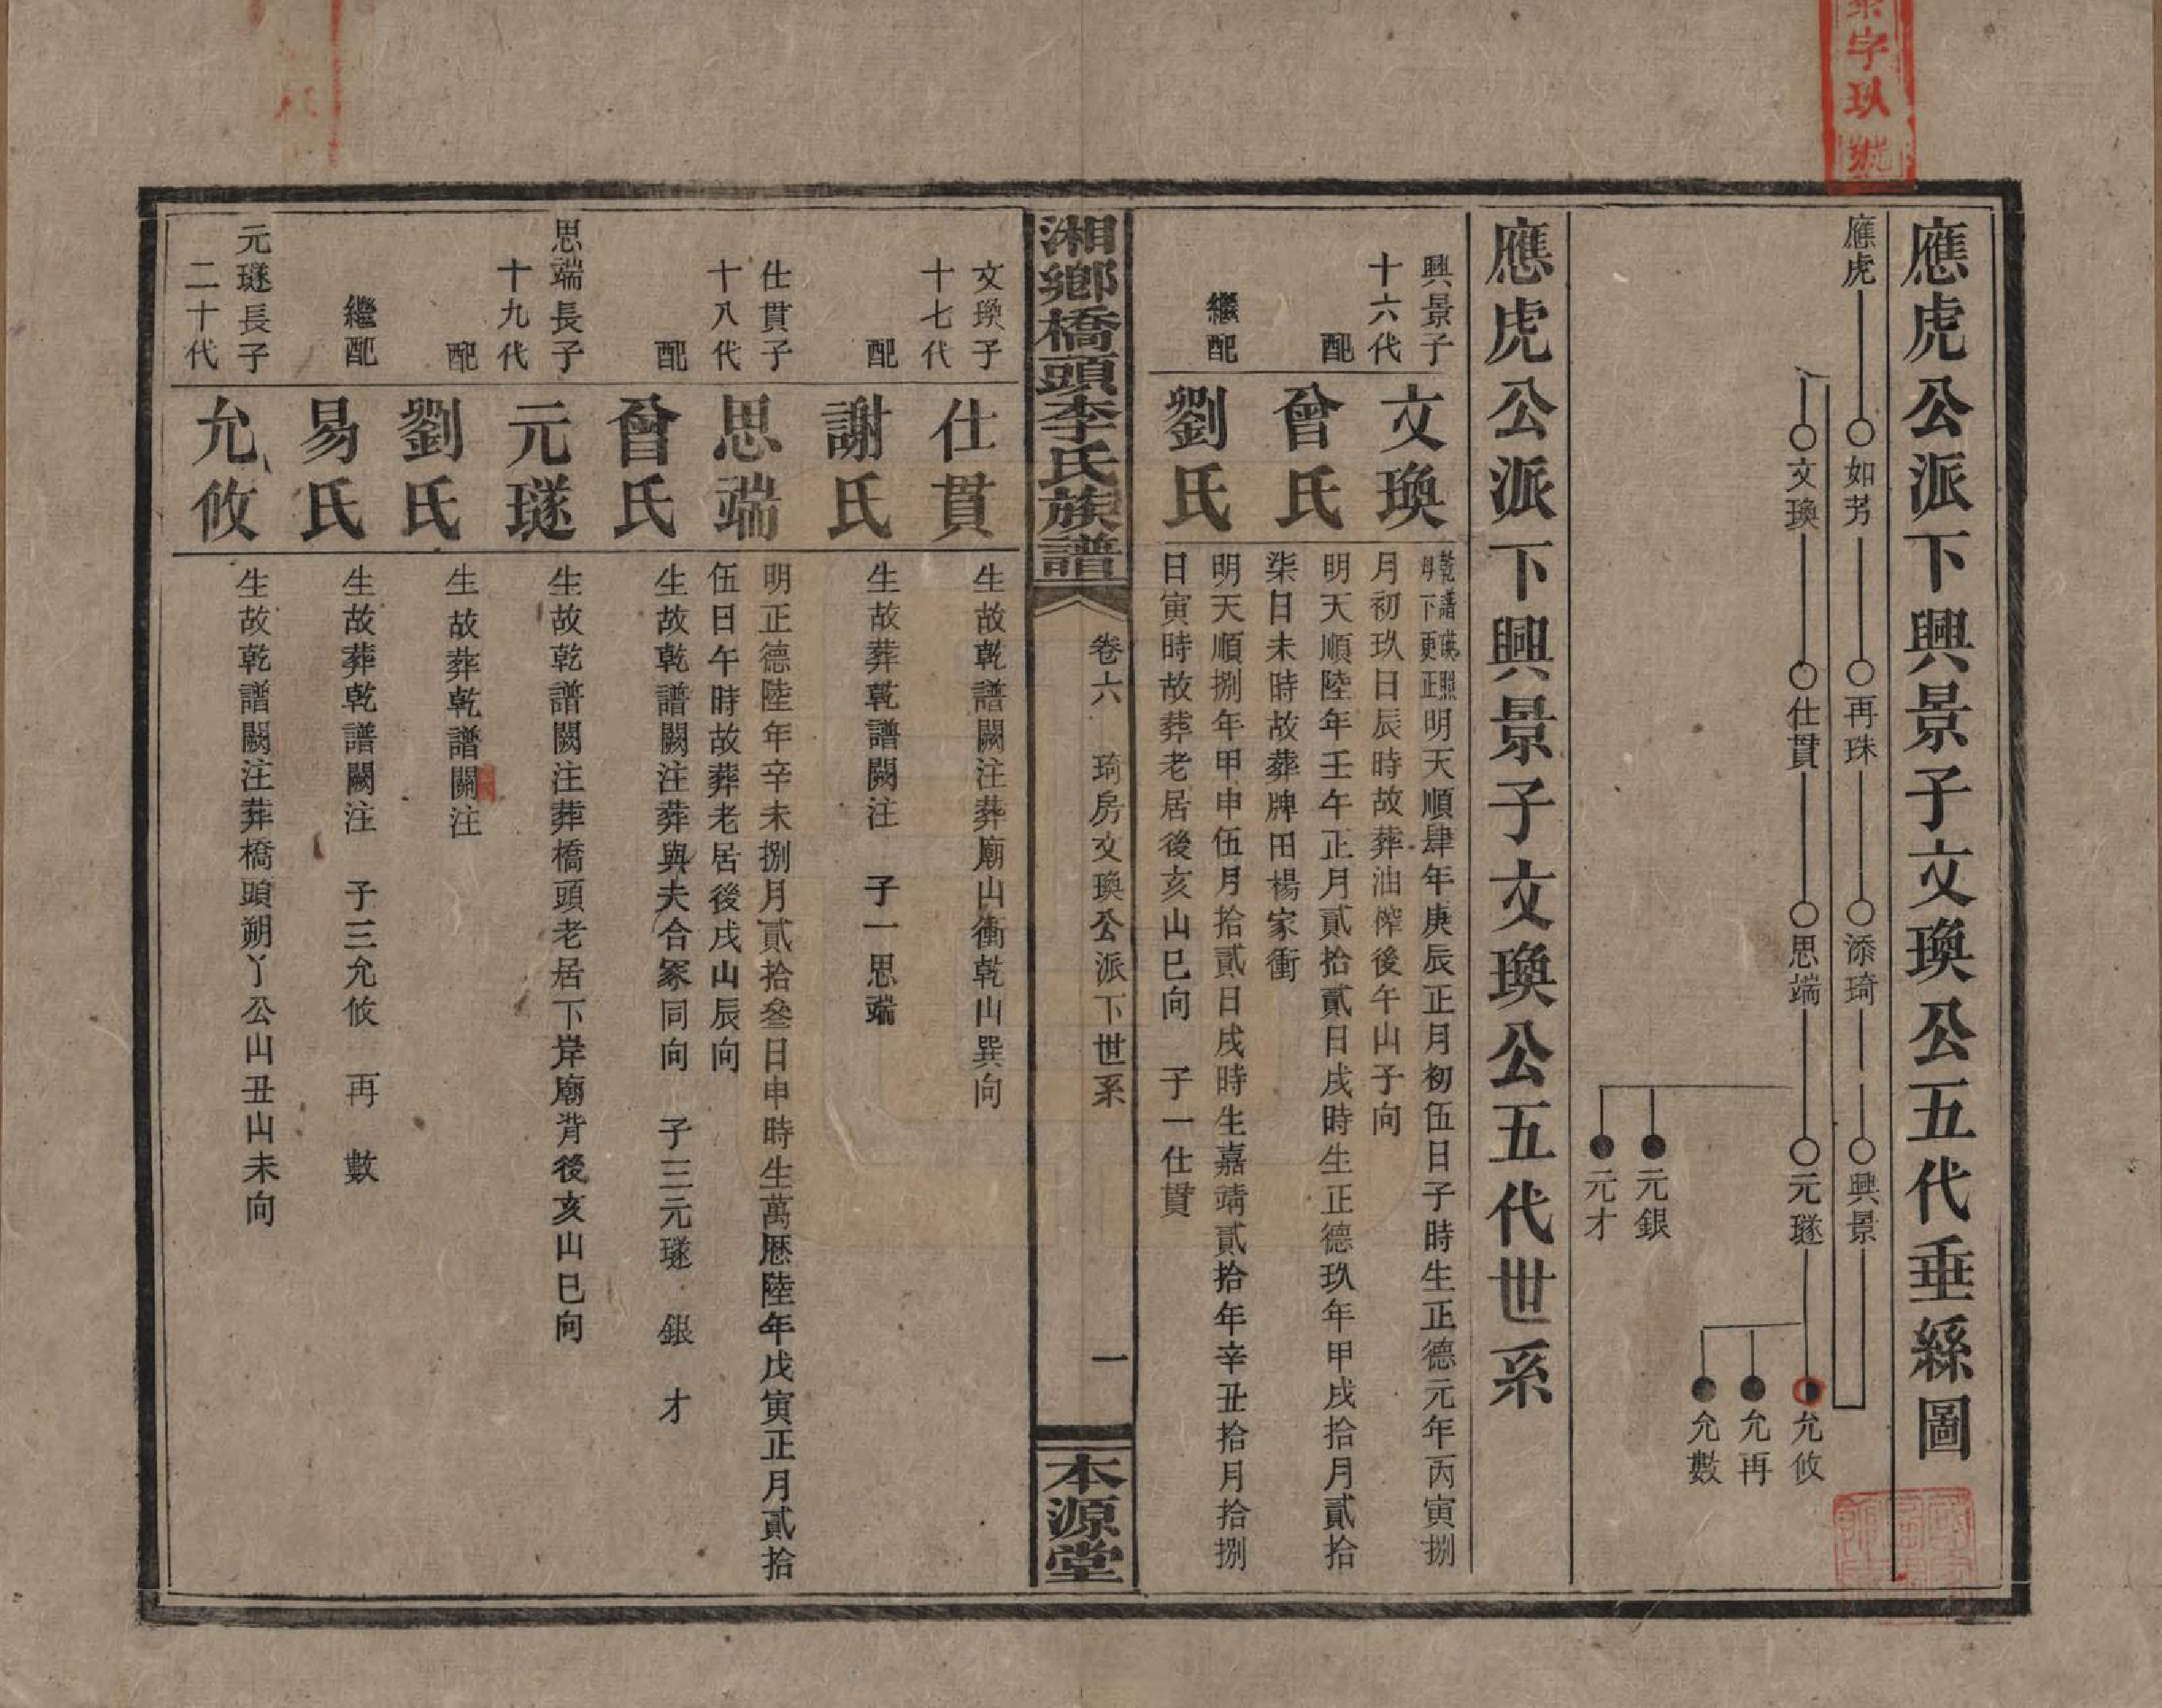 字玖號
應虎公派下興景子文瑍公五代垂絲圖
應虎
如芳
再珠
添琦
興景
文瑍
仕貫
思端
元璲
元銀
元才
允攸
允再
允數
應虎公派下興景子文瑍公五代世系
興景子
十六代
文瑍
明天順肆年庚辰正月初伍日子時生正德元年丙寅捌
月初玖日辰時故葬油榨後午山子向
配
曾氏
明天順陸年壬午正月貳拾貳日戌時生正德玖年甲戌拾月貳拾
柒日未時故葬牌田楊家衝
繼配
劉氏
明天順捌年甲申伍月拾貳日戌時生嘉靖貳拾年辛丑拾月拾捌
日寅時故葬老居後亥山巳向　子一仕貫
湘鄉橋頭李氏族譜
卷六　琦房文瑍公派下世系
一
本源堂
文瑍子
十七代
仕貫
生故乾譜闕注葬廟山衝乾山巽向
配
謝氏
生故葬乾譜闕注　子一思端
仕貫子
十八代
思端
明正德陸年辛未捌月貳拾叄日申時生萬歷陸年戊寅正月貳拾
伍日午時故葬老居後戌山辰向
配
曾氏
生故乾譜闕注葬與夫合冢同向　子三元璲　銀　才
思端長子
十九代
元璲
生故乾譜闕注葬橋頭老居下岸廟背後亥山巳向
配
劉氏
生故葬乾譜闕注
繼配
易氏
生故葬乾譜闕注　子三允攸　再　數
元璲長子
二十代
允攸
生故乾譜闕注葬橋頭朔丫公山丑山未向